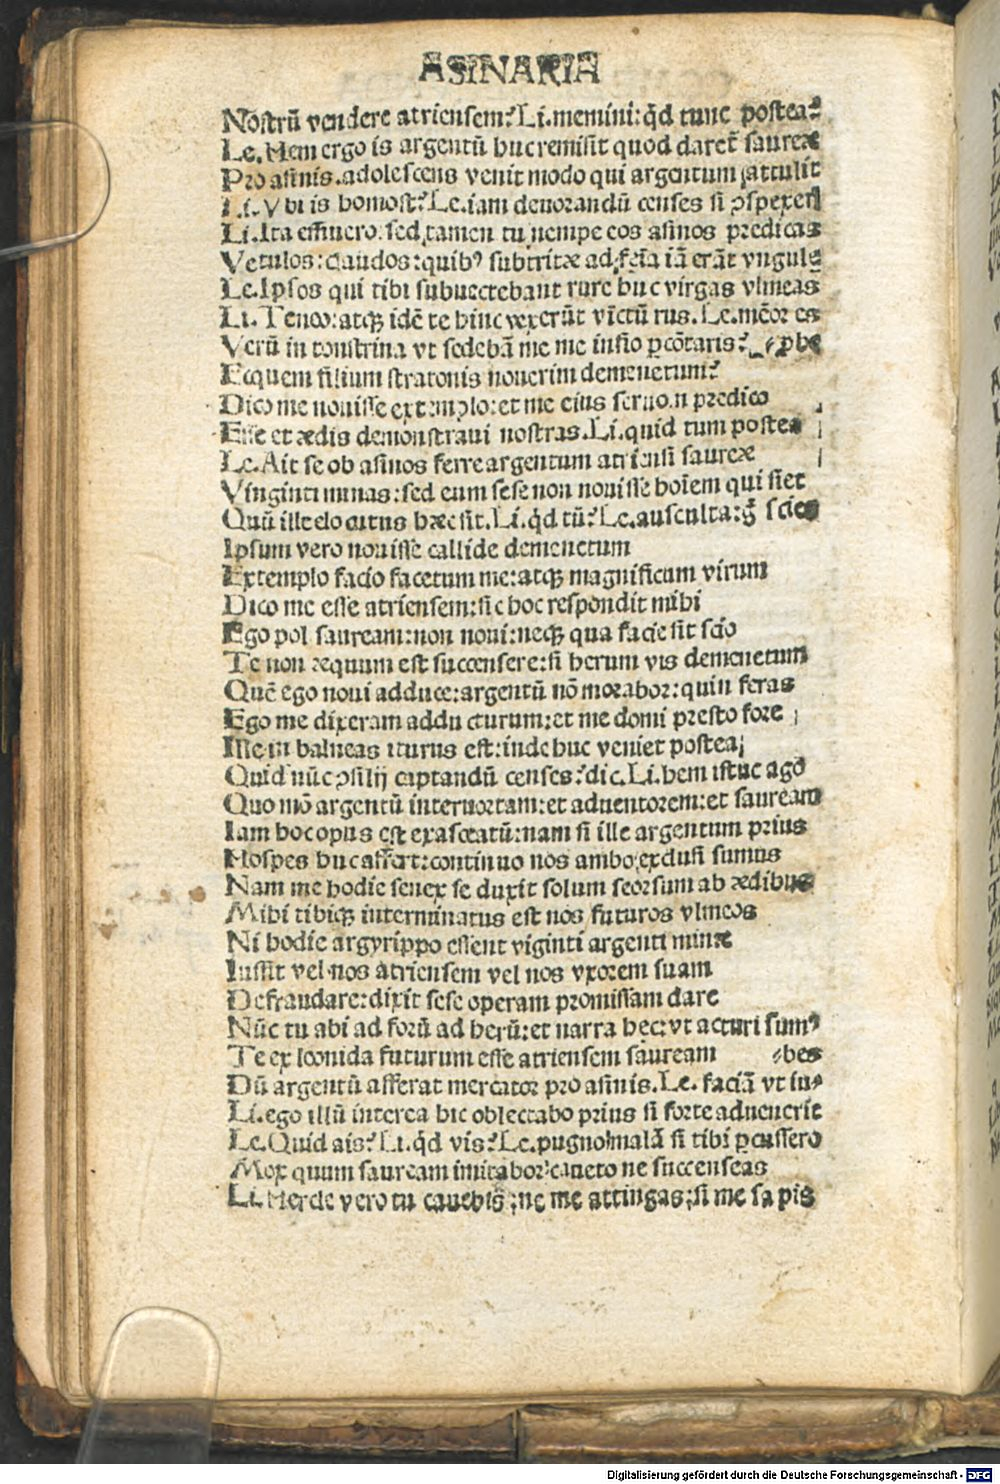 ASINARIA
Nostrū vendere atriensem? Li. memini: qd tunc postea?
Le. Hem ergo is argentū huc remisit quod daret saureæ
Pro asinis. adolescens venit modo qui argentum attulit
Li. Vbi is homost? Le. iam deuorandū censes si ↄspexeris
Li. Ita effinuero: sed tamen tu nempe eos asinos predicas
Vetulos: claudos: quibꝰ subtritæ ad fēīa iā erāt vngulę
Le. Ipsos qui tibi subuectebant rure huc virgas vlmeas
Li. Teneo: atqꝫ idē te hinc vexerūt vīctū rus. Le. mēor es
Verū in tonstrina vt sedebā me me infīo ꝑcōtaris?
Ecquem filium stratonis nouerim demenetum?
Dico me nouisse extemplo: et me eius seruo.n predico
Esse et ædis demonstraui nostras. Li. quid tum postea
Le. Ait se ob asinos ferre argentum atriensi saureæ
Vinginti minas: sed eum sese non nouisse hoīem qui siet
Quū ille elocutus hæc sit. Li. qd tū? Le. ausculta: g̊ scies
Ipsum vero nouisse callide demenetum
Extemplo facio facetum me: atqꝫ magnificum virum
Dico me esse atriensem: sic hoc respondit mihi
Ego pol sauream: non noui: neqꝫ qua facie sit scio
Te non æquum est succensere: si herum vis demenetum
Quē ego noui adduce: argentū nō morabor: quin feras
Ego me dixeram adducturum: et me domi presto fore
Ille in balneas iturus est: inde huc veniet postea
Quid nūc ↄsilij captandū censes? dic. Li. hem istuc agō
Quo mō argentū interuortam: et aduentorem: et sauream
Iam hoc opus est exasceatū: nam si ille argentum prius
Hospes huc affert: continuo nos ambo exclusi sumus
Nam me hodie senex se duxit solum seorsum ab ædibus
Mihi tibiqꝫ interminatus est nos futuros vlmeos
Ni hodie argyrippo essent viginti argenti minæ
Iussit vel nos atriensem vel nos vxorem suam
Defraudare: dixit sese operam promissam dare
Nūc tu abi ad forū ad herū: et narra hec: vt acturi sumꝰ
Te ex leonida futurum esse atriensem sauream -bes
Dū argentū afferat mercator pro asinis. Le. faciā vt iu-
Li. ego illū interea hic oblectabo prius si forte aduenerit
Le. Quid ais? Li. qd vis? Le. pugno malā si tibi ꝑcussero
Mox quum sauream imitabor: caueto ne succenseas
Li. Hercle vero tu cauebis: ne me attingas: si me sapis
Digitalisierung gefördert durch die Deutsche Forschungsgemeinschaft - DFG